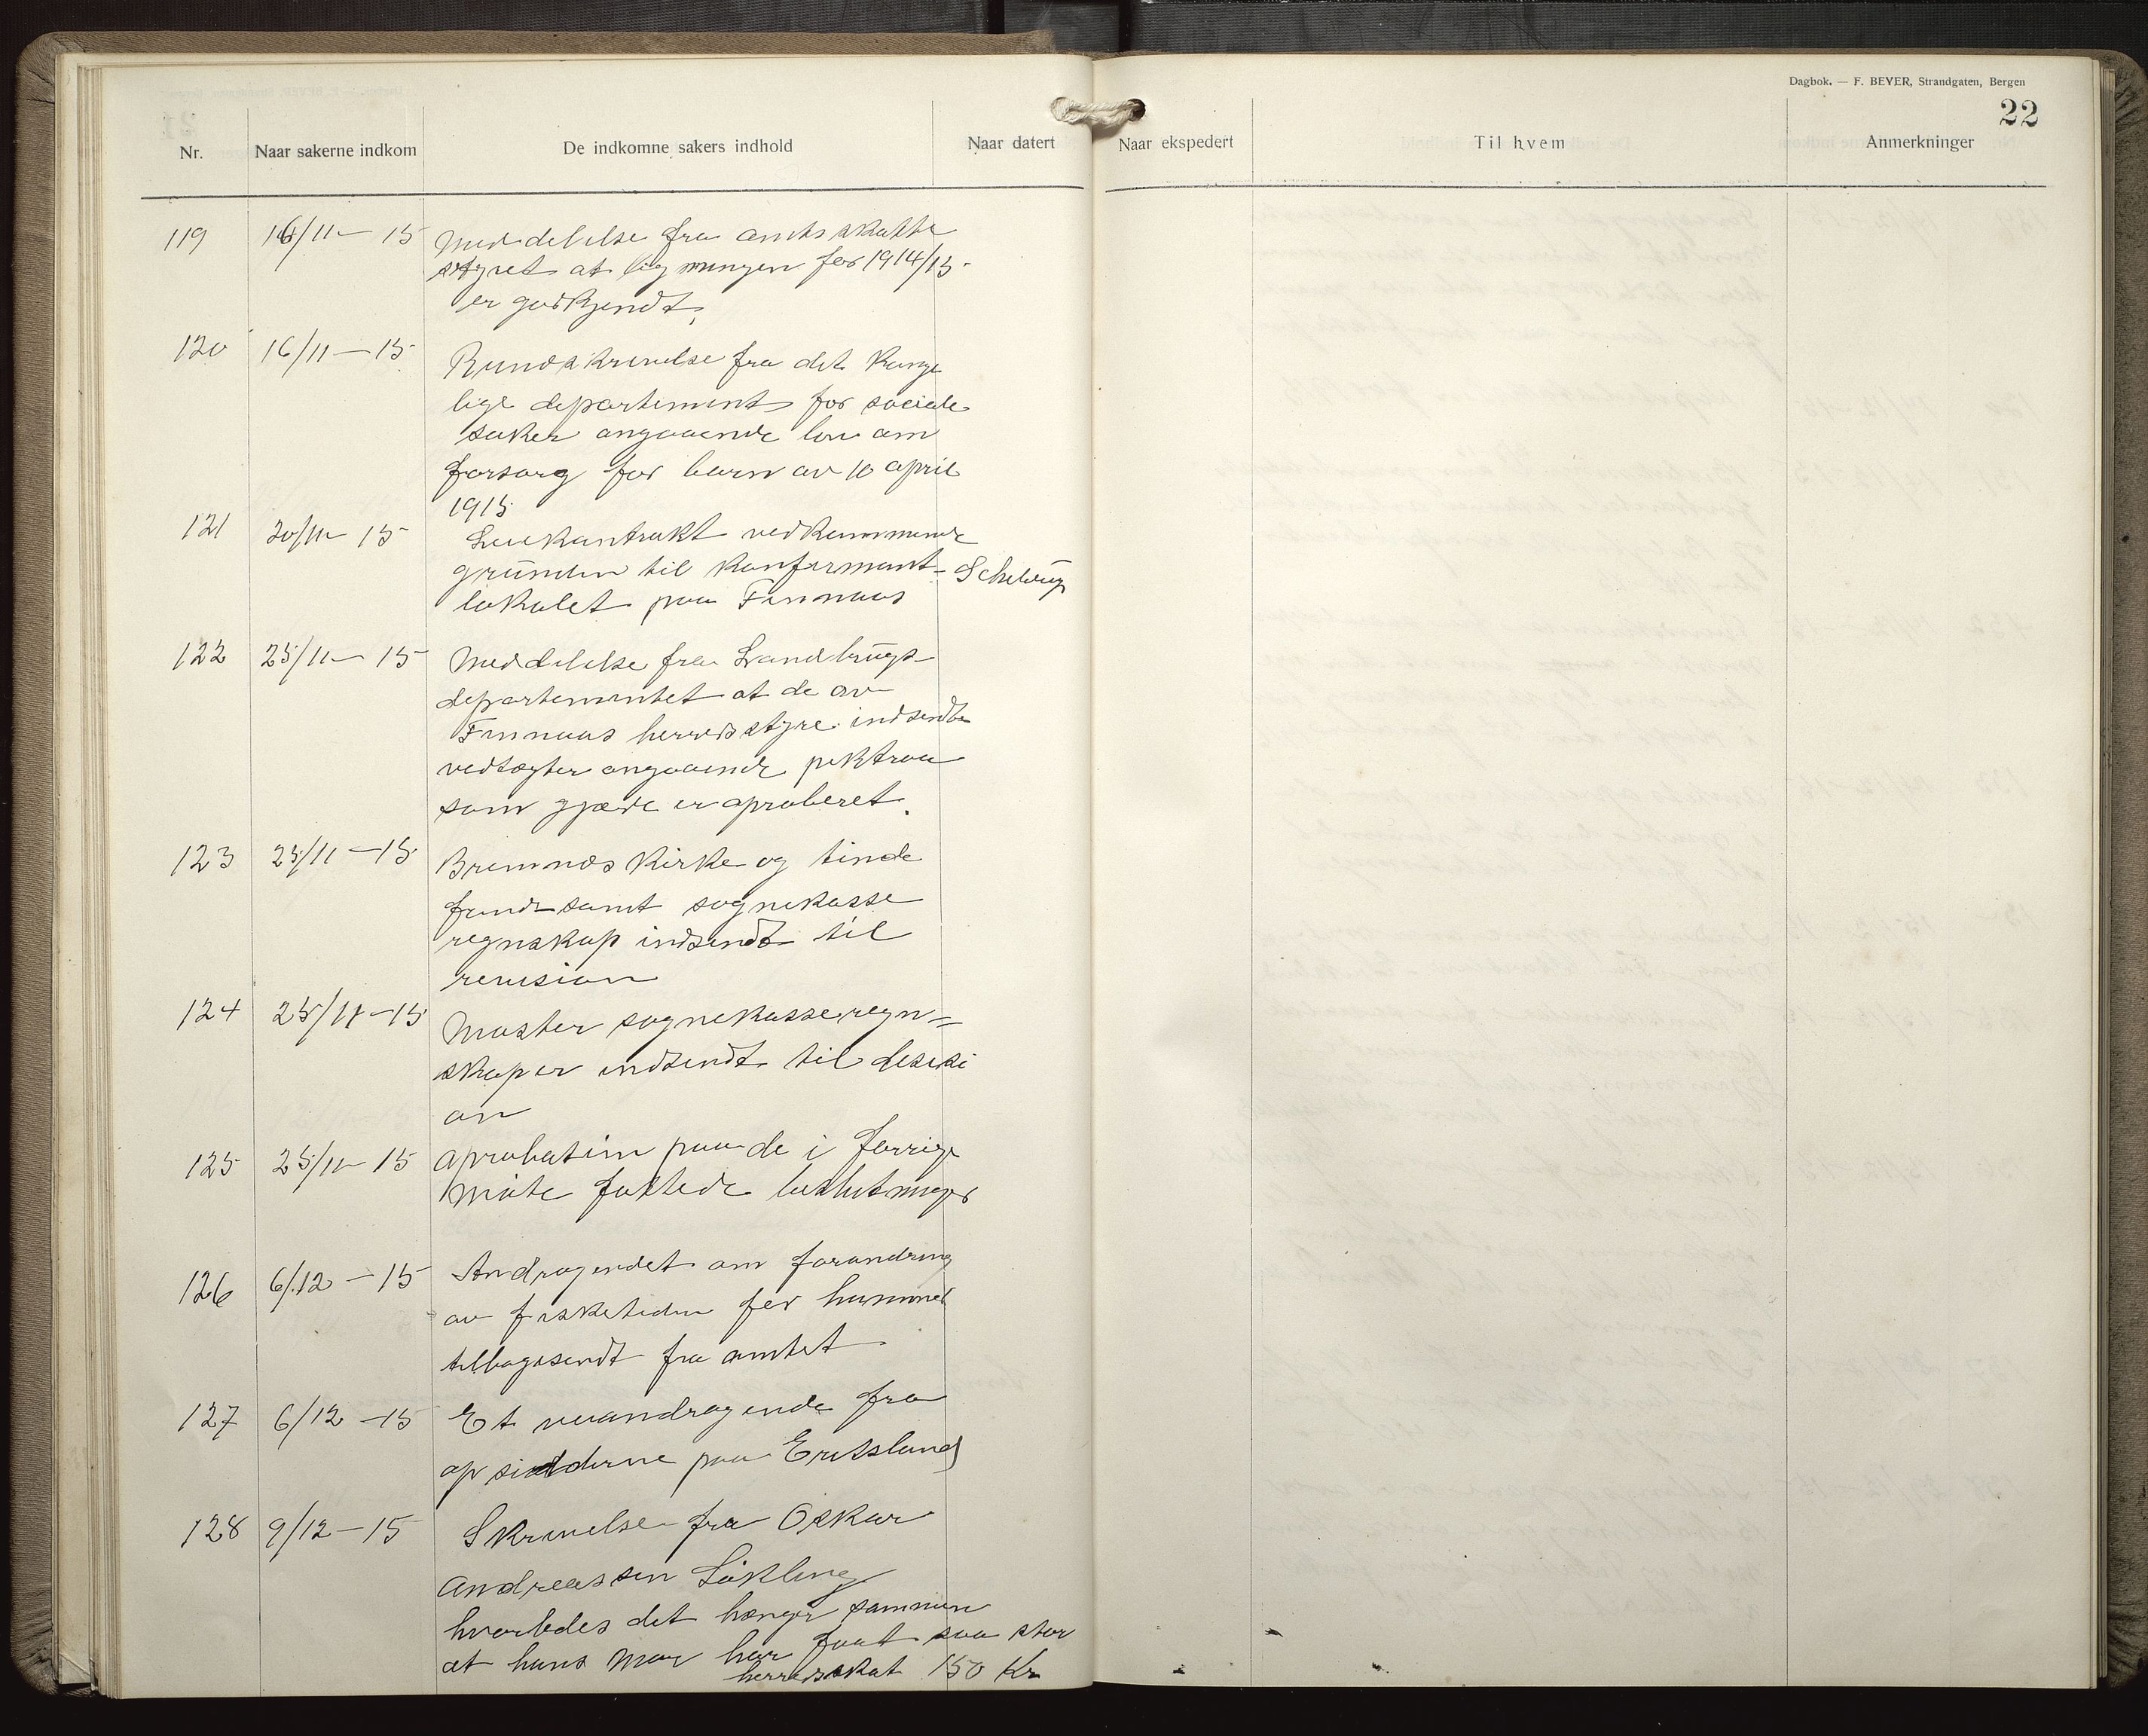 Dagbok. — F. BEYER, Strandgaten, Bergen
22
Nr. Naar sakerne indkom De indkomne sakers indhold Naar datert Naar ekspedert Til hvem Anmerkninger
119 16/11 - 15 Meddelelse fra amtsskatte
styret at ligningen for 1914/15
er godkjendt.
120 16/11 - 15 Rundskrivelse fra det konge
lige departement for sociale
saker angaaende lov om
forsorg for barn av 10 april
1915
121 20/11 - 15 Leiekontrakt vedkommende
grunden til konfirmant- Schelrup
lokalet paa Finnaas
122 25/11 - 15 Meddelelse fra Landbrugs-
departementet at de av
Finnaas herredsstyre indsendte
vedtægter angaaende piktraa
som gjærde er aproberet.
123 25/11 - 15 Bremnæs kirke og tinde
fond samt sognekasse
regnskap indsendt til
revision
124 25/11 - 15 Moster sognekasseregn=
skaper indsendt til desisi
on
125 25/11 - 15 aprobation paa de i forrige
møte fattede beslutninger
126 6/12 - 15 Andragendet om forandring
av fisketiden for hummer
tilbagesendt fra amtet
127 6/12 - 15 Et veiandragende fra
opsidderne paa Eritsland
128 9/12 - 15 Skrivelse fra Oskar
Andreassen Løkling
hvorledes det hænger sammen
at hans Mor har faat saa stor
herredsskat 150 Kr